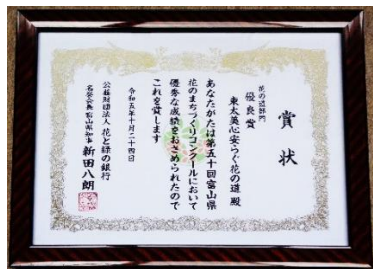 賞状
花の道部門
優良賞
東太美心安らぐ花の道 殿
あなたがたは第五十回富山県
花のまちづくりコンクールにおいて
優秀な成績をおさめられたので
これを賞します
令和五年十月二十四日
公益財団法人 花と緑の銀行
名誉会長 富山県知事 新田八朗